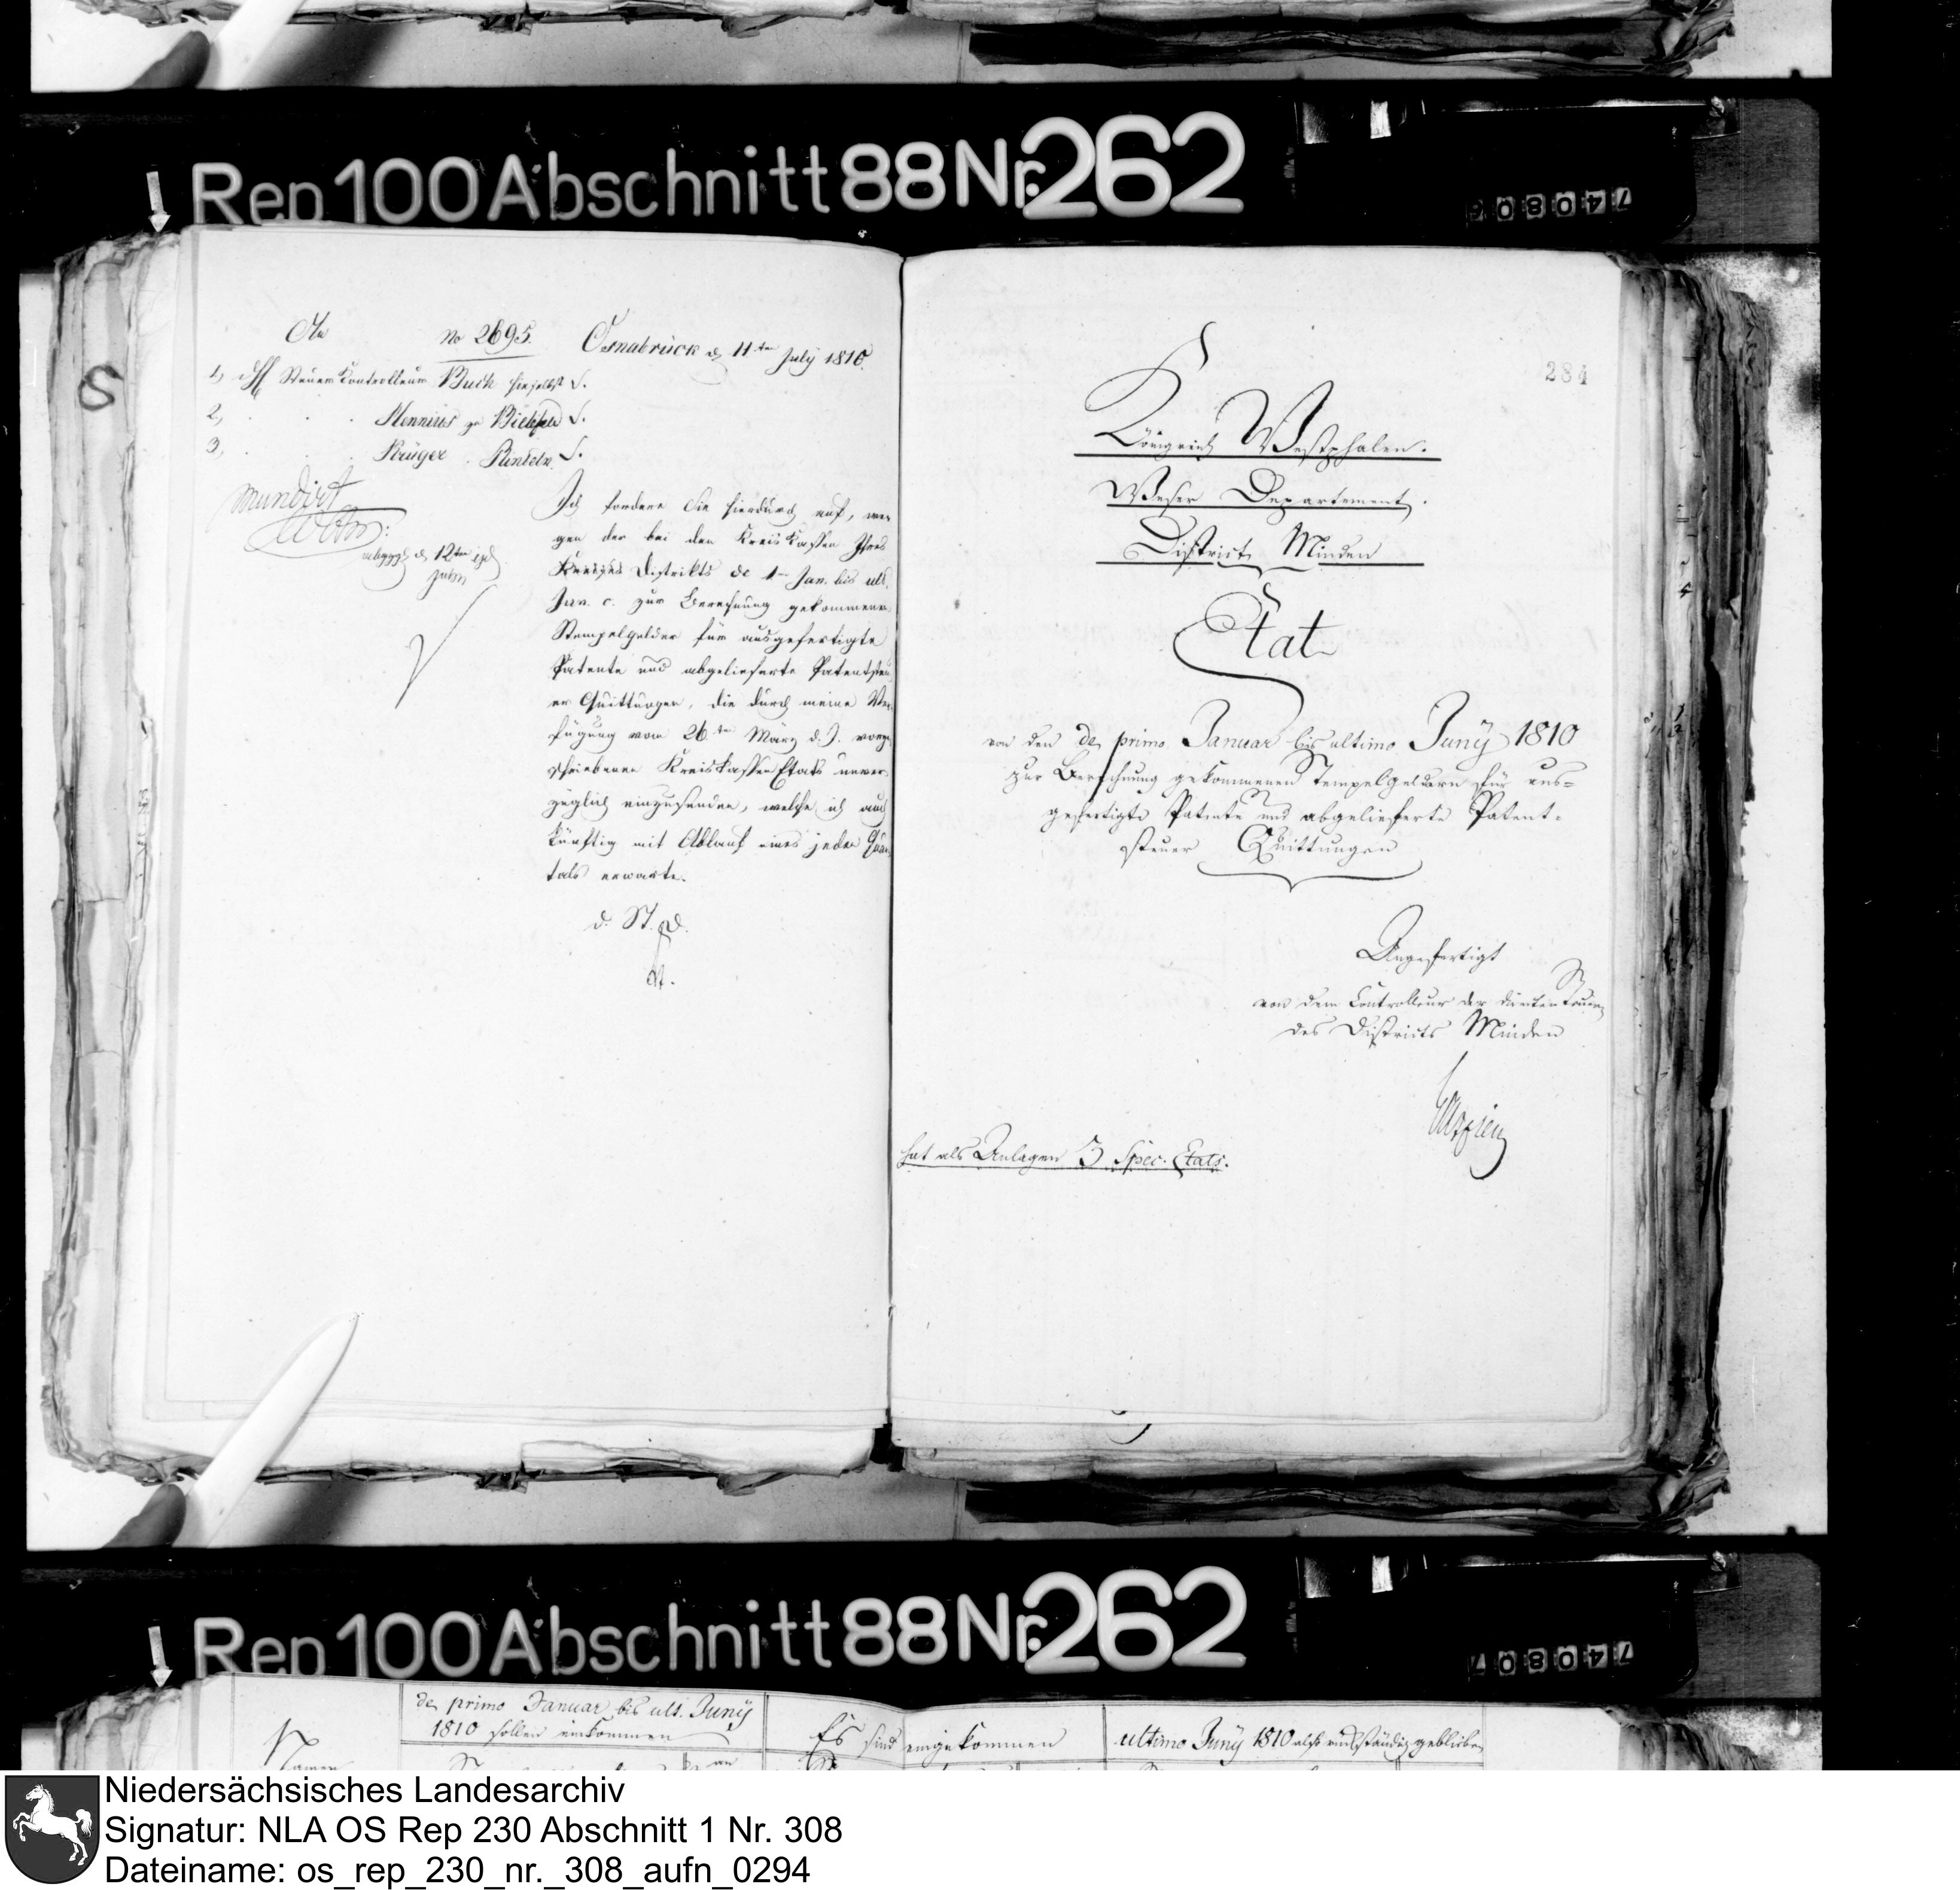 Rep 100 Abschnitt 88 Nr. 262
740806
S
An
No 2695.
Osnabrück d. 11ten July 1810.
1, dH Steuer Kontrolleur Buck hieselbst S.
2, Hennius zu Bielefeld S.
3, Krüger Rinteln S.
mundirt
abgegg. d. 12ten ejd.
Ich fordere Sie hierdurch auf, we-
gen der bei den Kreis Kassen Ihres
Distrikts de 1ten Jan. bis ult.
Jun. c. zur Berechnung gekommenen
Stempelgelder für ausgefertigte
Patente und abgelieferte Patentsteu-
er Quittungen, die durch meine Ver-
fügung vom 26ten März d. J. vorge-
schriebenen Kreiskassen Etats unver-
züglich einzusenden, welche ich auch
künftig mit Ablauf eines jeden Quar-
tals erwarte.
d. St. D.
284
Königreich Westphalen.
Weser Departement.
District Minden
Etat
von den de primo Januar bis ultimo Juny 1810
zur Berechnung gekommenen Stempelgeldern für aus-
gefertigte Patente und abgelieferte Patent-
steuer Quittungen
Angefertigt
von dem Controlleur der directen Steuern
des Districts Minden
hat als Anlagen 3 Spec. Etats.
Rep 100 Abschnitt 88 Nr. 262
740807
Namen
de primo Januar bis ult. Juny
1810 sollen einkommen
Es sind eingekommen
ultimo Juny 1810 also rückständig geblieben
Niedersächsisches Landesarchiv
Signatur: NLA OS Rep 230 Abschnitt 1 Nr. 308
Dateiname: os_rep_230_nr._308_aufn_0294